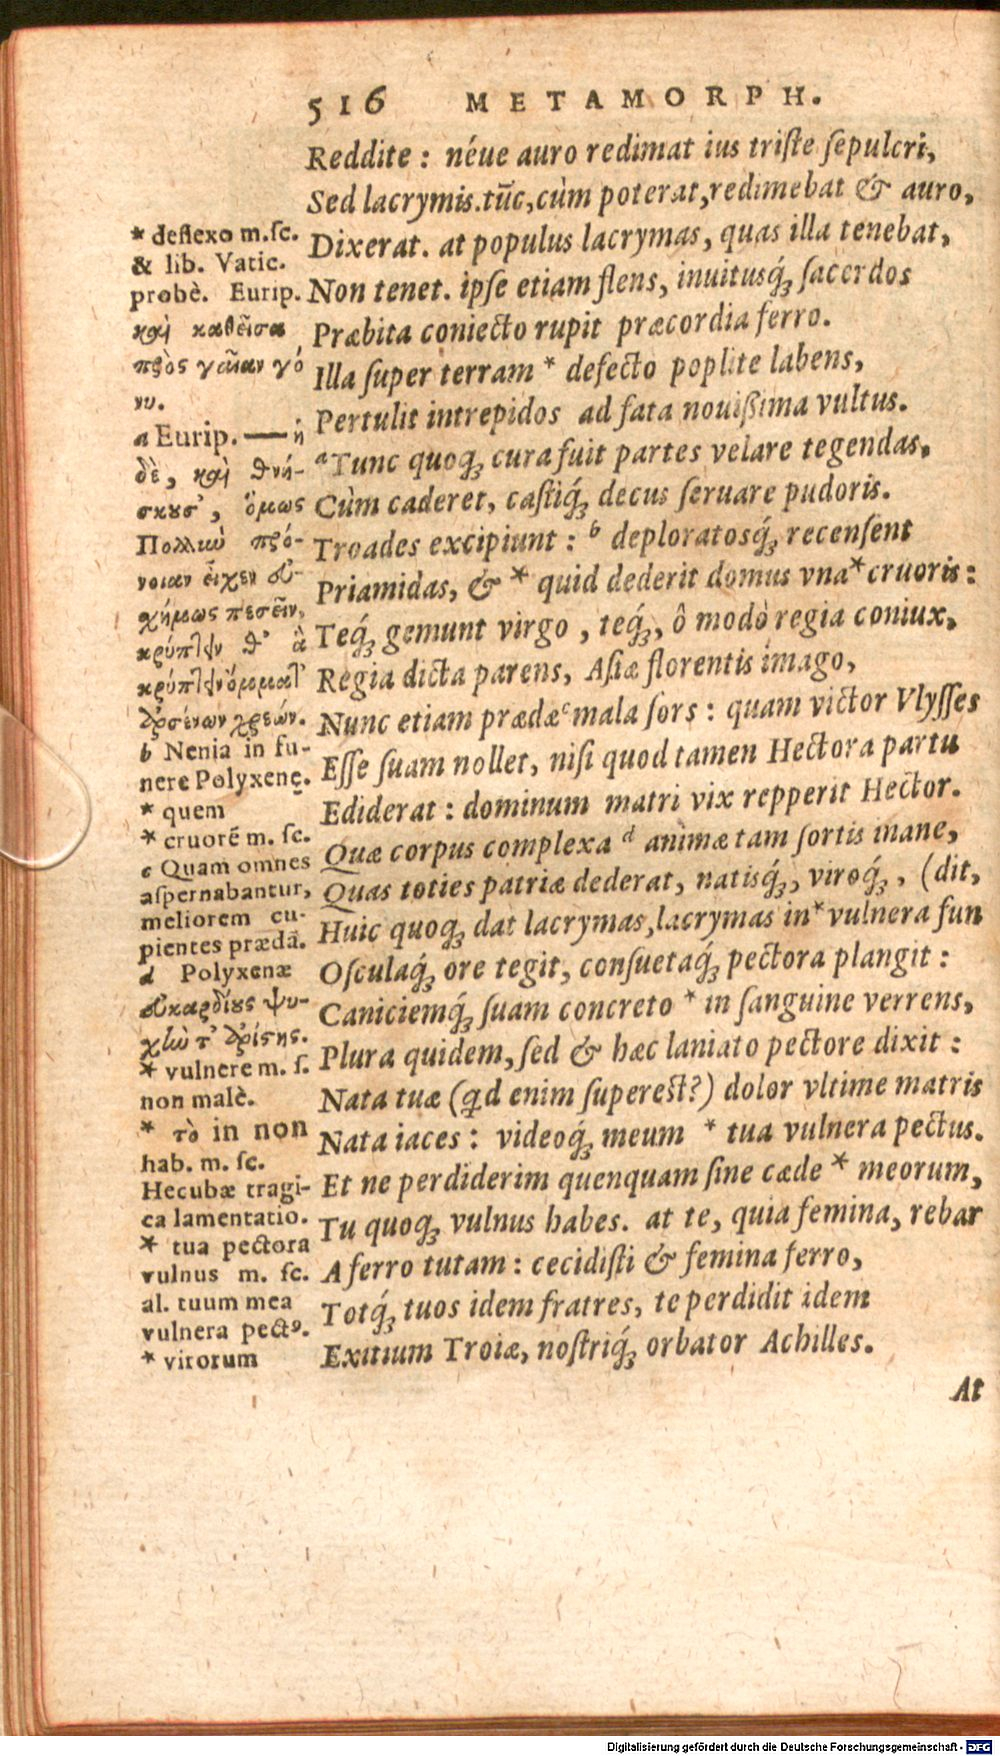 516 METAMORPH.
Reddite : néue auro redimat ius triſte ſepulcri,
Sed lacrymis.tūc,cùm poterat,redimebat & auro,
Dixerat. at populus lacrymas, quas illa tenebat,
Non tenet. ipſe etiam flens, inuituſq́; ſacerdos
Præbita coniecto rupit præcordia ferro.
Illa ſuper terram * defecto poplite labens,
Pertulit intrepidos ad fata nouißima vultus.
ᵃTunc quoq; cura fuit partes velare tegendas,
Cùm caderet, caſtiq́; decus ſeruare pudoris.
Troades excipiunt : ᵇ deploratosq́; recenſent
Priamidas, & * quid dederit domus vna * cruoris :
Teq́; gemunt virgo , teq́;, ô modò regia coniux,
Regia dicta parens, Aſiæ florentis imago,
Nunc etiam prædæ ᶜ mala ſors : quam victor Vlyſſes
Eſſe ſuam nollet, niſi quod tamen Hectora partu
Ediderat : dominum matri vix repperit Hector.
Quæ corpus complexa ᵈ animæ tam fortis inane,
Quas toties patriæ dederat, natisq́;, viroq́; , (dit,
Huic quoq; dat lacrymas,lacrymas in * vulnera fun
Oſculaq́; ore tegit, conſuetaq́; pectora plangit :
Caniciemq́; ſuam concreto * in ſanguine verrens,
Plura quidem, ſed & hæc laniato pectore dixit :
Nata tuæ (qd enim ſupereſt?) dolor vltime matris
Nata iaces : videoq́; meum * tua vulnera pectus.
Et ne perdiderim quenquam ſine cæde * meorum,
Tu quoq; vulnus habes. at te, quia femina, rebar
A ferro tutam : cecidiſti & femina ferro,
Totq́; tuos idem fratres, te perdidit idem
Exitium Troiæ, noſtriq́; orbator Achilles.
At
* deflexo m.ſc.
& lib. Vatic.
probè. Eurip.
καὶ καθεῖσα
πρὸς γαῖαν γό
νυ.
a Eurip. — ἡ
δὲ, καὶ θνή-
σκουσ', ὅμως
Πολλὴν πρό-
νοιαν εἶχεν εὐ-
χήμως πεσεῖν,
κρύπτειν θ' ἃ
κρύπτειν ὄμματ'
ἀρσένων χρεών.
b Nenia in fu-
nere Polyxenę.
* quem
* cruorē m. ſc.
c Quam omnes
aſpernabantur,
meliorem cu-
pientes prædā.
d Polyxenæ
εὐκαρδίους ψυ-
χὴν τ' ἀρίστης.
* vulnere m. ſ.
non malè.
* τὸ in non
hab. m. ſc.
Hecubæ tragi-
ca lamentatio.
* tua pectora
vulnus m. ſc.
al. tuum mea
vulnera pectꝰ.
* virorum
Digitalisierung gefördert durch die Deutsche Forschungsgemeinschaft - DFG